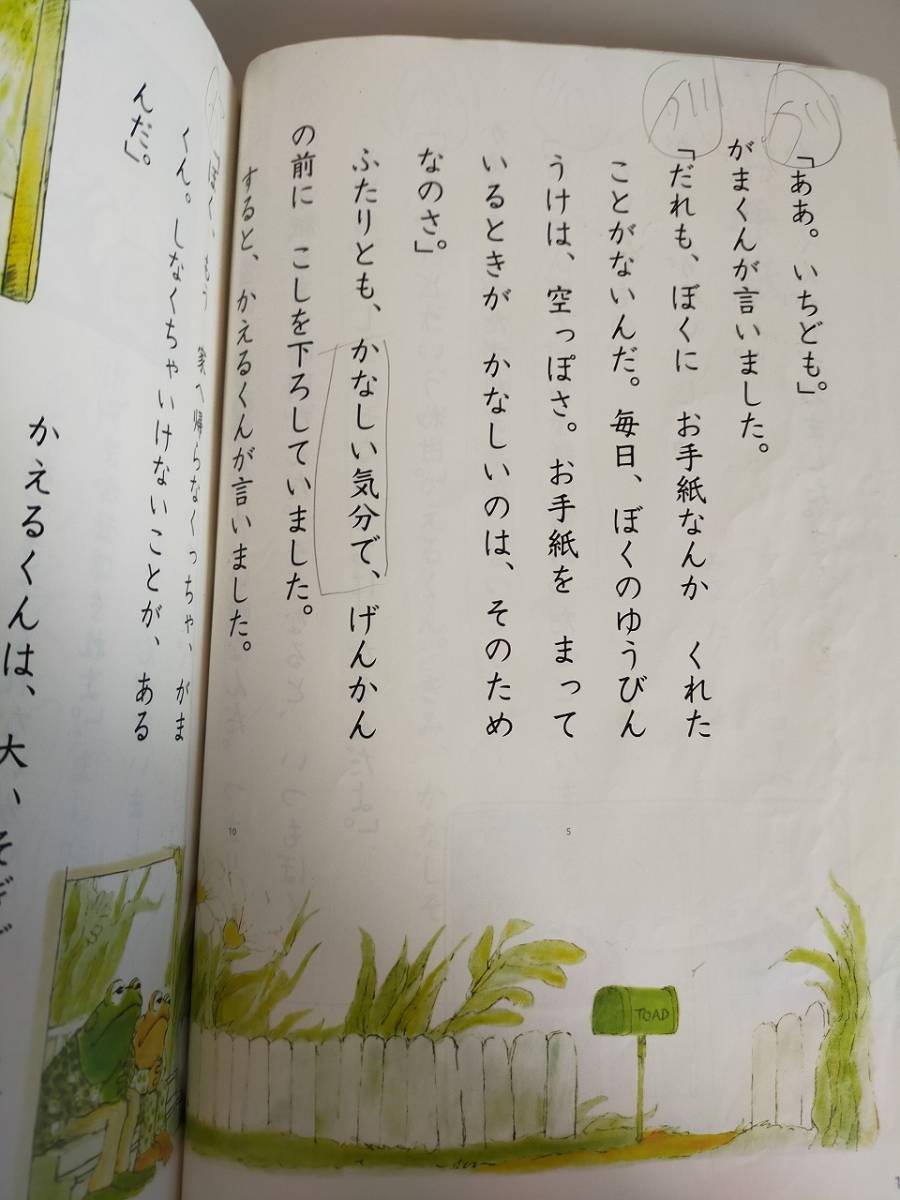 が
「ああ。いちども」。
がまくんが言いました。
が
「だれも、ぼくに お手紙なんか くれた
ことがないんだ。毎日、ぼくのゆうびん
うけは、空っぽさ。お手紙を まって
いるときが かなしいのは、そのため
なのさ」。
ふたりとも、かなしい気分で、げんかん
の前に こしを下ろしていました。
すると、かえるくんが言いました。
5
10
TOAD
「ぼく、もう 家へ帰らなくっちゃ、がま
くん。しなくちゃいけないことが、ある
んだ」。
かえるくんは、大いそぎで